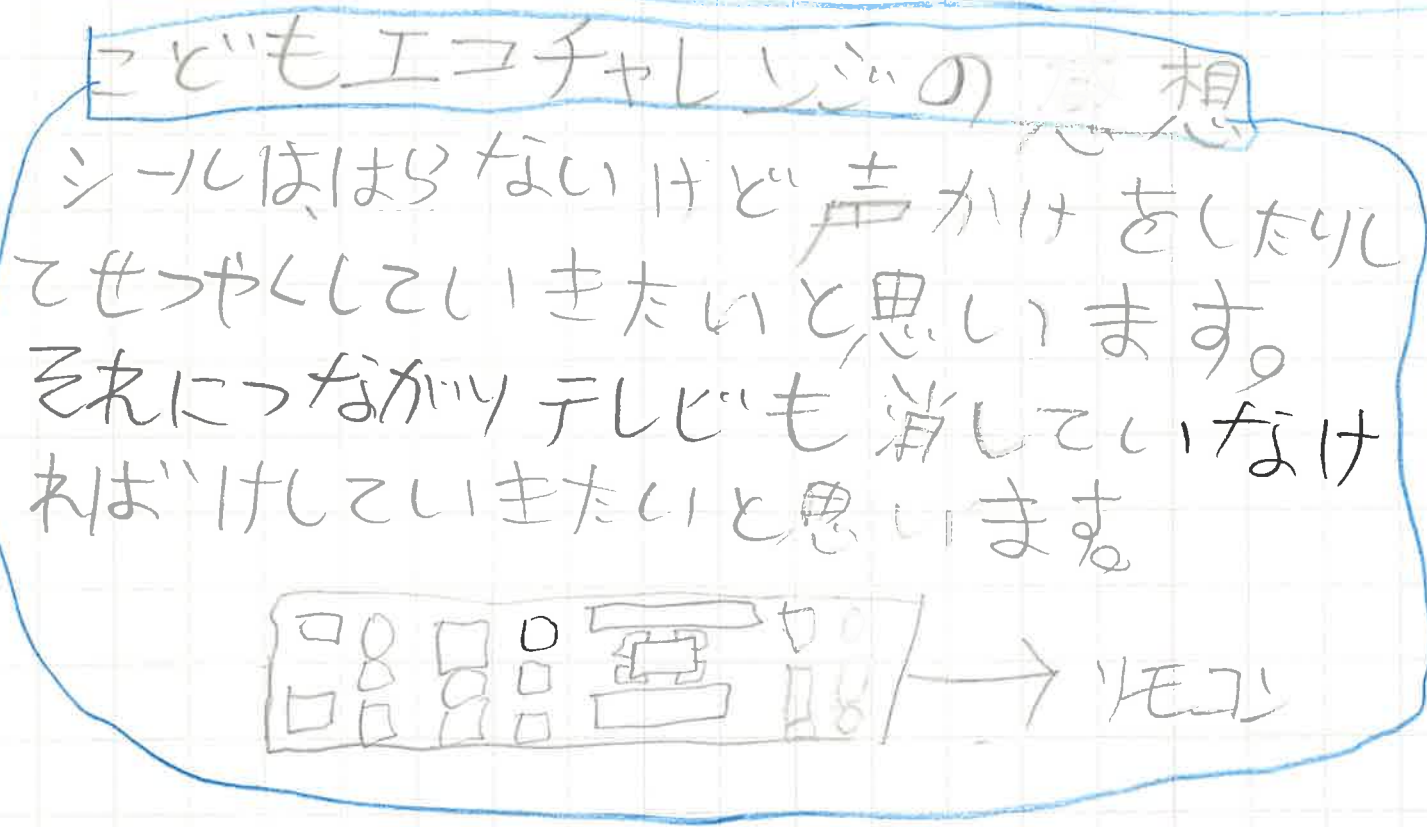 こどもエコチャレンジの感想
シールは、はらないけど声かけをしたりし
てせつやくしていきたいと思います。
それにつながりテレビも消していなけ
ればけしていきたいと思います。
リモコン